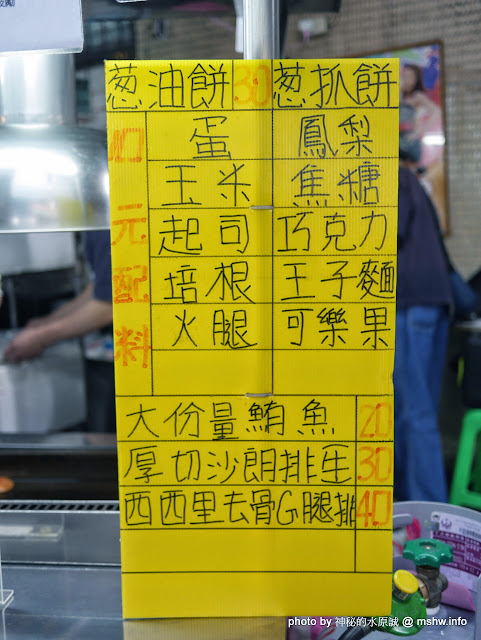 葱油餅 30 葱抓餅
10元配料
蛋 鳳梨
玉米 焦糖
起司 巧克力
培根 王子麵
火腿 可樂果
大份量鮪魚 20
厚切沙朗排 30
西西里去骨G腿排 40
photo by 神秘的水原誠 @ mshw.info